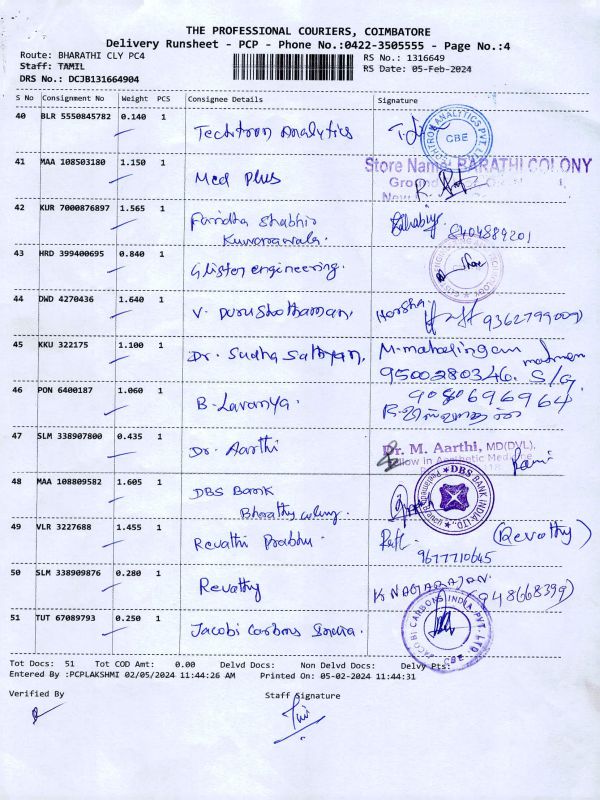 THE PROFESSIONAL COURIERS, COIMBATORE
Delivery Runsheet - PCP - Phone No.:0422-3505555 - Page No.:4
Route: BHARATHI CLY PC4
Staff: TAMIL
DRS No.: DCJB131664904
RS No.: 1316649
RS Date: 05-Feb-2024
S No Consignment No Weight PCS Consignee Details Signature
40 BLR 5550845782 0.140 1 Techitron Analytics
CBE
41 MAA 108503180 1.150 1 Med Plus
Store Name: BARATHI COLONY
42 KUR 7000876897 1.565 1 Faridha Shabhir
Kuwarawala. 8404889201
43 HRD 399400695 0.840 1 Glisten engineering.
44 DWD 4270436 1.640 1 V. Purushothaman, Harsha.
45 KKU 322175 1.100 1 Dr. Sudha Sathyan, M. mahalingam
9500280346. S/G.
46 PON 6400187 1.060 1 B. Lavanya. 9080696964
47 SLM 338907800 0.435 1 Dr. Aarthi
Dr. M. Aarthi, MD(DVL),
48 MAA 108809582 1.605 1 DBS Bank
Bharathy colony.
DBS BANK INDIA LTD.
49 VLR 3227688 1.455 1 Revathi Prabhu. (Revathy)
9677710645
50 SLM 338909876 0.280 1 Revathy K NAGARAJAN.
51 TUT 67089793 0.250 1 Jacobi Carbons India.
JACOBI CARBONS INDIA PVT. LTD. CBE
Tot Docs: 51 Tot COD Amt: 0.00 Delvd Docs: Non Delvd Docs: Delvy Pts:
Entered By :PCPLAKSHMI 02/05/2024 11:44:26 AM Printed On: 05-02-2024 11:44:31
Verified By Staff Signature